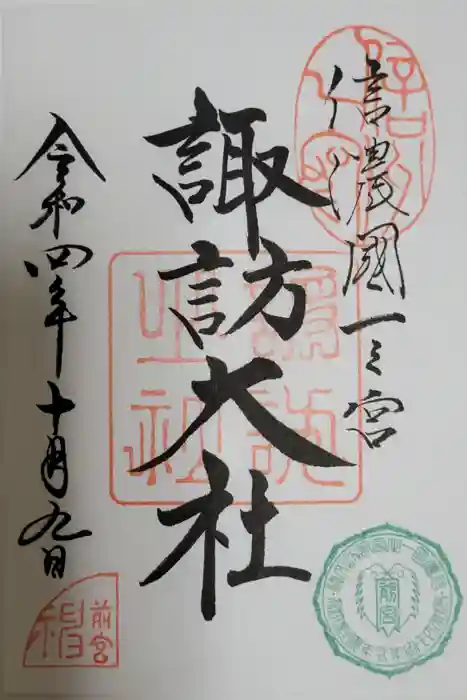 信濃國一之宮
諏訪大社
令和四年十月九日
前宮
前宮